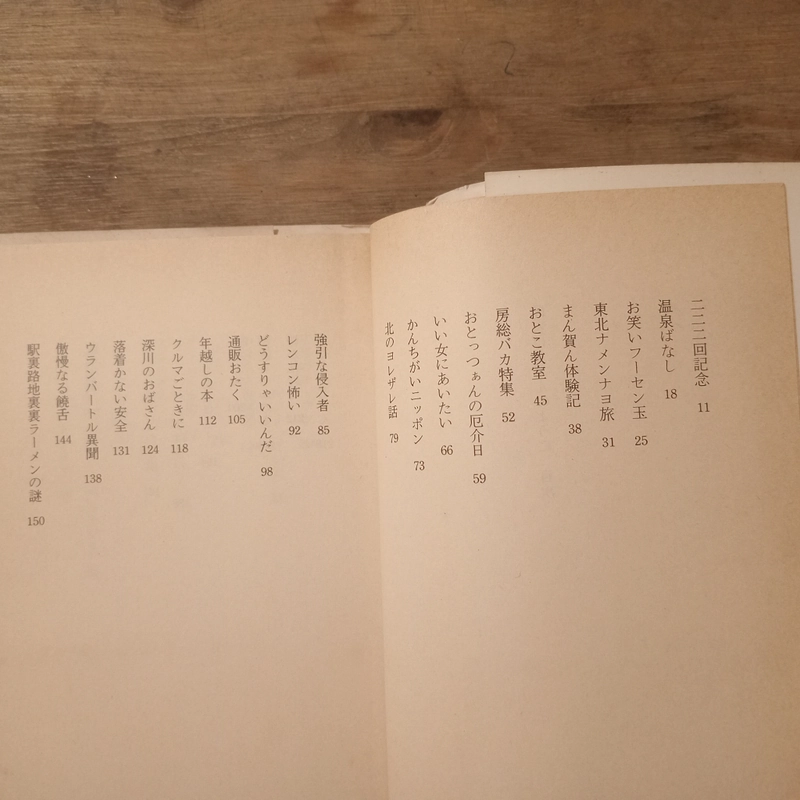 二二二回記念 11
温泉ばなし 18
お笑いフーセン玉 25
東北ナメンナヨ旅 31
まん賀ん体験記 38
おとこ教室 45
房総バカ特集 52
おとっつぁんの厄介日 59
いい女にあいたい 66
かんちがいニッポン 73
北のヨレザレ話 79
強引な侵入者 85
レンコン怖い 92
どうすりゃいいんだ 98
通販おたく 105
年越しの本 112
クルマごときに 118
深川のおばさん 124
落着かない安全 131
ウランバートル異聞 138
傲慢なる饒舌 144
駅裏路地裏裏ラーメンの謎 150